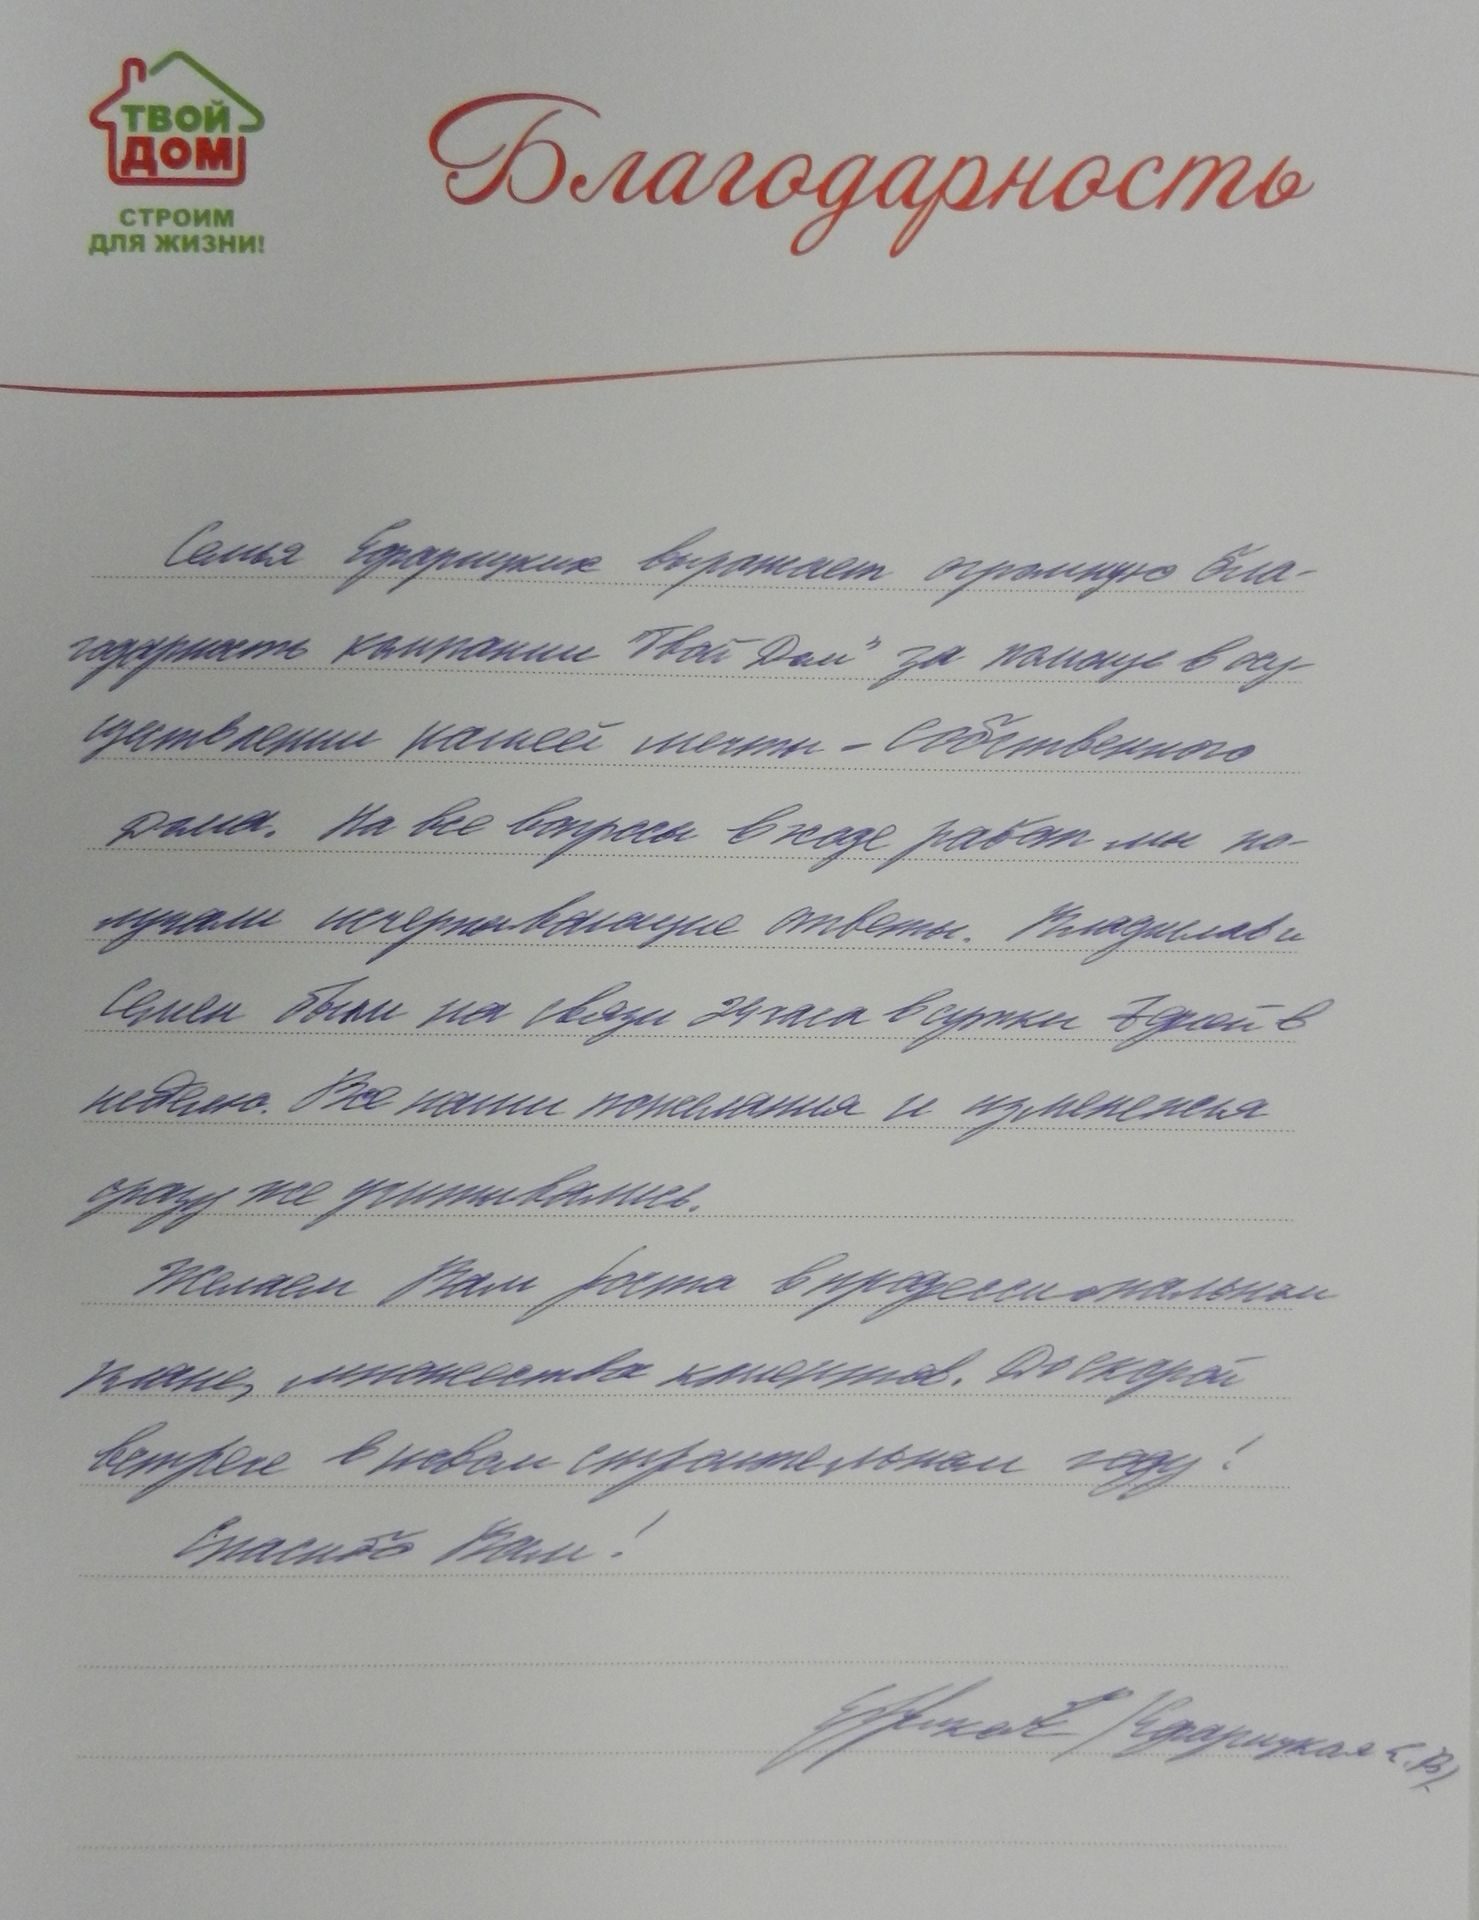 ТВОЙ
ДОМ
СТРОИМ
ДЛЯ ЖИЗНИ!
Благодарность
Семья выражает огромную бла-
годарность компании "Твой Дом" за помощь в осу-
ществлении нашей мечты - собственного
дома. На все вопросы в ходе работ мы по-
лучали исчерпывающие ответы. Владислав и
Семен были на связи 24 часа в сутки 7 дней в
неделю. Все наши пожелания и изменения
сразу же учитывались.
Желаем Вам роста в профессиональном
плане, множества клиентов. До скорой
встрече в новом строительном году!
Спасибо Вам!